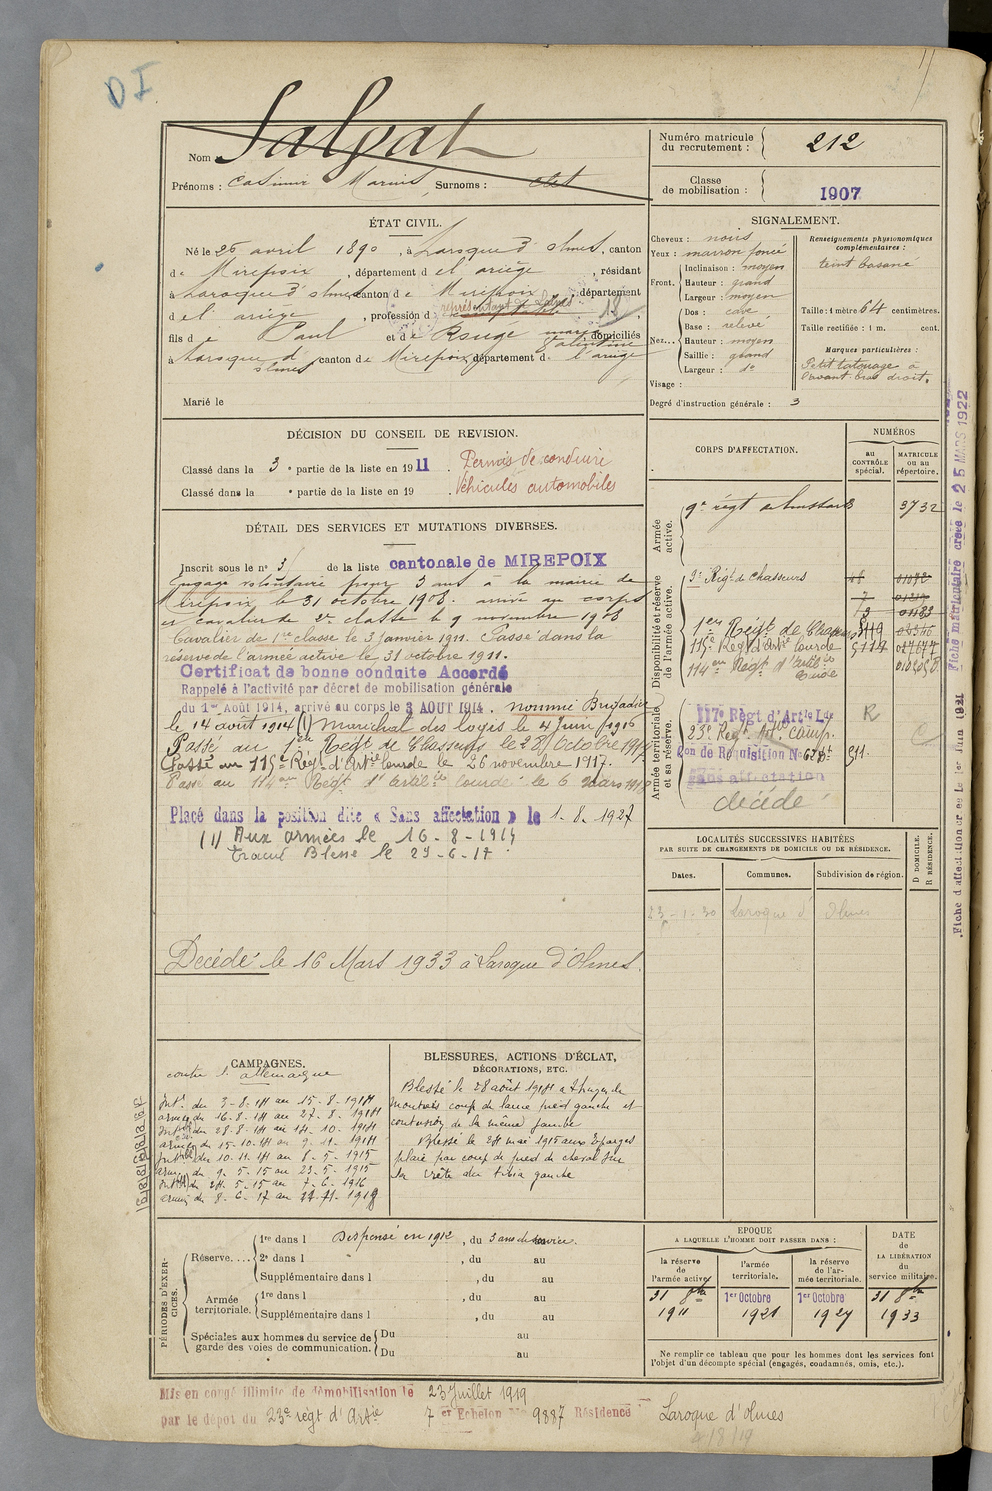 DI
Nom : Salgat
Prénoms : Casimir Marius Surnoms :
Numéro matricule du recrutement : 212
Classe de mobilisation : 1907
ÉTAT CIVIL.
Né le 25 avril 1890, à Laroque d'olmes, canton
de Mirepoix, département d el ariège, résidant
à Laroque d'olmes canton de Mirepoix département
d el ariège, profession de représentant de
fils de Paul et de Rouge marie domiciliés
à Laroque d'olmes canton de Mirepoix, département d. l'ariège
Marié le
SIGNALEMENT.
Cheveux : noirs
Yeux : marron foncé
Front. Inclinaison : moyen
Hauteur : grand
Largeur : moyen
Nez... Dos : cave
Base : relevé
Hauteur : moyen
Saillie : grand
Largeur : do
Visage :
Renseignements physionomiques complémentaires :
teint basané
Taille : 1 mètre 64 centimètres.
Taille rectifiée : 1 m. cent.
Marques particulières :
Petit tatouage à
l'avant bras droit.
Degré d'instruction générale : 3
DÉCISION DU CONSEIL DE REVISION.
Classé dans la 3e partie de la liste en 1911.
Classé dans la e partie de la liste en 19 .
Permis de conduire
Véhicules automobiles
DÉTAIL DES SERVICES ET MUTATIONS DIVERSES.
Inscrit sous le no 3 de la liste cantonale de MIREPOIX
Engagé volontaire pour 3 ans à la mairie de
Mirepoix le 31 octobre 1908. arrivé au corps
et cavalier de 2e classe le 9 novembre 1908
Cavalier de 1re classe le 3 janvier 1911. Passé dans la
réserve de l'armée active le 31 octobre 1911.
Certificat de bonne conduite Accordé
Rappelé à l'activité par décret de mobilisation générale
du 1er Août 1914, arrivé au corps le 3 AOUT 1914. nommé Brigadier
le 14 août 1914 (1) maréchal des logis le 4 Juin 1916
Passé au 1er Régt de Chasseurs le 28 Octobre 1917
Passé au 115e Régt d'Artie lourde le 26 novembre 1917.
Passé au 114me Régt d'Artilie lourde le 6 mars 1918
Placé dans la position dite « Sans affectation » le 1. 8. 1927
(1) Aux armées le 16-8-1914
Evacué Blessé le 23-6-17
Décédé le 16 Mars 1933 à Laroque d'Olmes.
CORPS D'AFFECTATION.
NUMÉROS
au CONTRÔLE spécial.
MATRICULE ou au répertoire.
Armée active.
9e régt de hussards 3732
Disponibilité et réserve de l'armée active.
9e Régt de chasseurs
1er Régt de Chasseurs
115e Régt d'Artie lourde
114me Régt d'Artilie lourde
Armée territoriale et sa réserve.
117e Régt d'Artie Lde
23e Regt Artie Camp.
Con de Réquisition No
Sans affectation
décédé
R
C
LOCALITÉS SUCCESSIVES HABITÉES
PAR SUITE DE CHANGEMENTS DE DOMICILE OU DE RÉSIDENCE.
Dates. Communes. Subdivision de région. D DOMICILE. R RÉSIDENCE.
23-1-30 Laroque d'Olmes
Fiche matriculaire créée le 25 MARS 1922
Fiche d'affectation créée le 1er Juin 1921
CAMPAGNES.
contre l'allemagne
Intr. du 3-8-14 au 15-8-1914
armées du 16-8-14 au 27-8-1914
Intr du 28-8-14 au 14-10-1914
armées du 15-10-14 au 9-11-1914
Intr du 10-11-14 au 8-5-1915
armées du 9-5-15 au 23-5-1915
Intr du 24-5-15 au 7-6-1916
armées du 8-6-17 au 11-1918
BLESSURES, ACTIONS D'ÉCLAT,
DÉCORATIONS, ETC.
Blessé le 28 août 1914 à
coup de lance pied gauche et
contusion de la même jambe
Blessé le 24 mai 1915 aux Eparges
plaie par coup de pied de cheval sur
la crête du tibia gauche
PÉRIODES D'EXERCICES.
Réserve....
1re dans l Dispensé en 1912, du 3 ans de service.
2e dans l , du au
Supplémentaire dans l , du au
Armée territoriale.
1re dans l , du au
Supplémentaire dans l , du au
Spéciales aux hommes du service de garde des voies de communication.
Du au
Du au
EPOQUE
A LAQUELLE L'HOMME DOIT PASSER DANS :
la réserve de l'armée active
l'armée territoriale.
la réserve de l'armée territoriale.
DATE DE LA LIBÉRATION du service militaire.
31 8bre 1911
1er Octobre 1921
1er Octobre 1927
31 8bre 1933
Ne remplir ce tableau que pour les hommes dont les services font
l'objet d'un décompte spécial (engagés, condamnés, omis, etc.).
Mis en congé illimité de démobilisation le 23 Juillet 1919
par le dépôt du 23e régt d'Artie 7 er Echelon No 9887 Résidence Laroque d'olmes
4/8/19